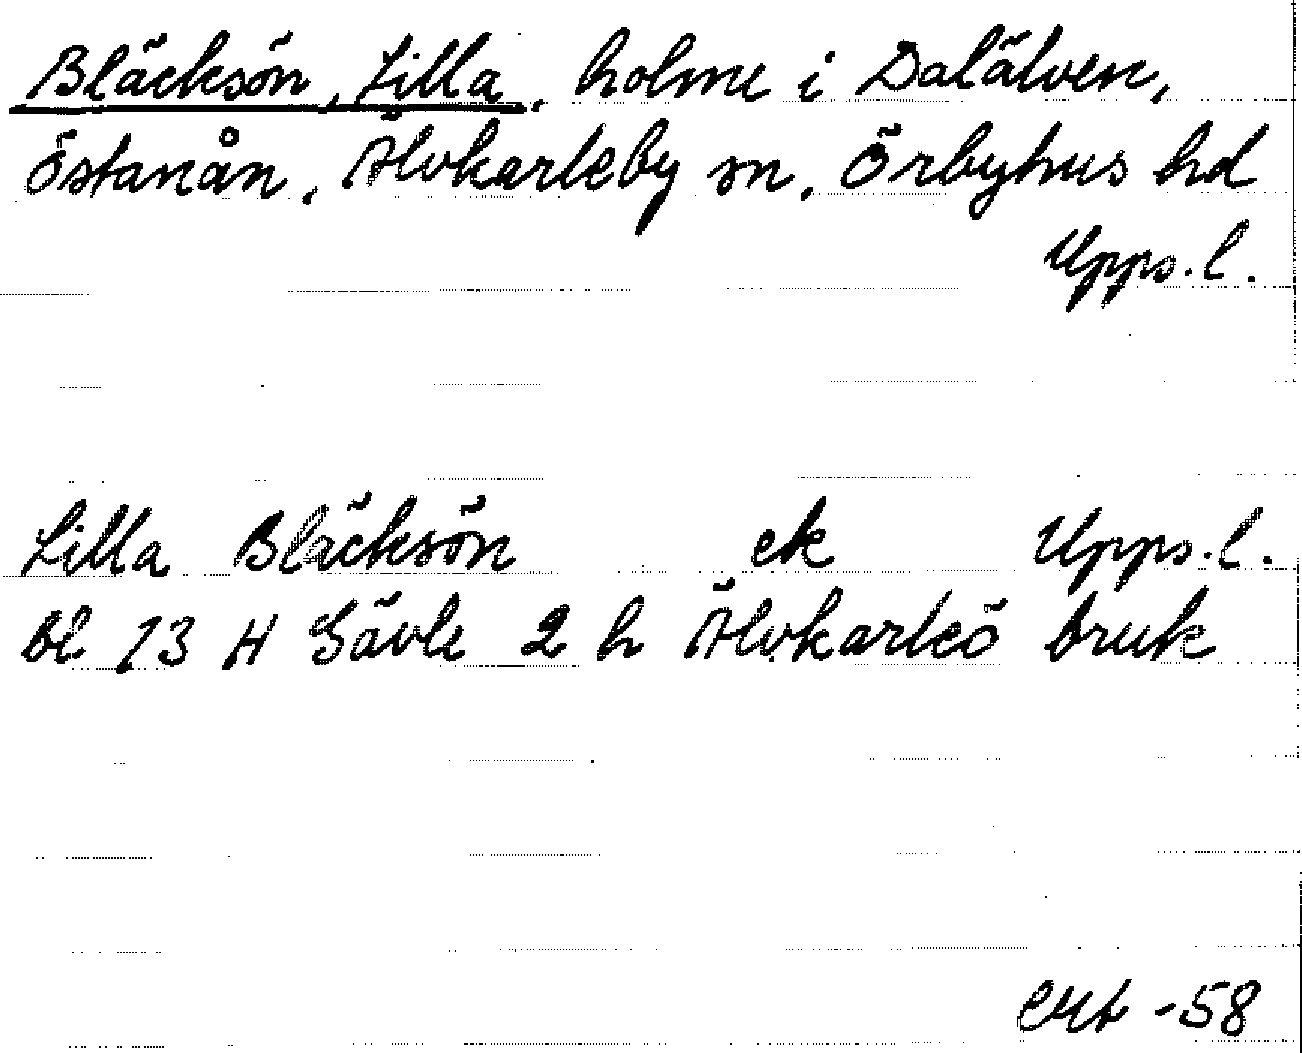 Bläcksön, Lilla, holme i Dalälven,
Östanån, Älvkarleby sn, Örbyhus hd
Upps.l.
Lilla Bläcksön ek Upps.l.
bl 13 H Gävle 2 h Älvkarleö bruk
-58